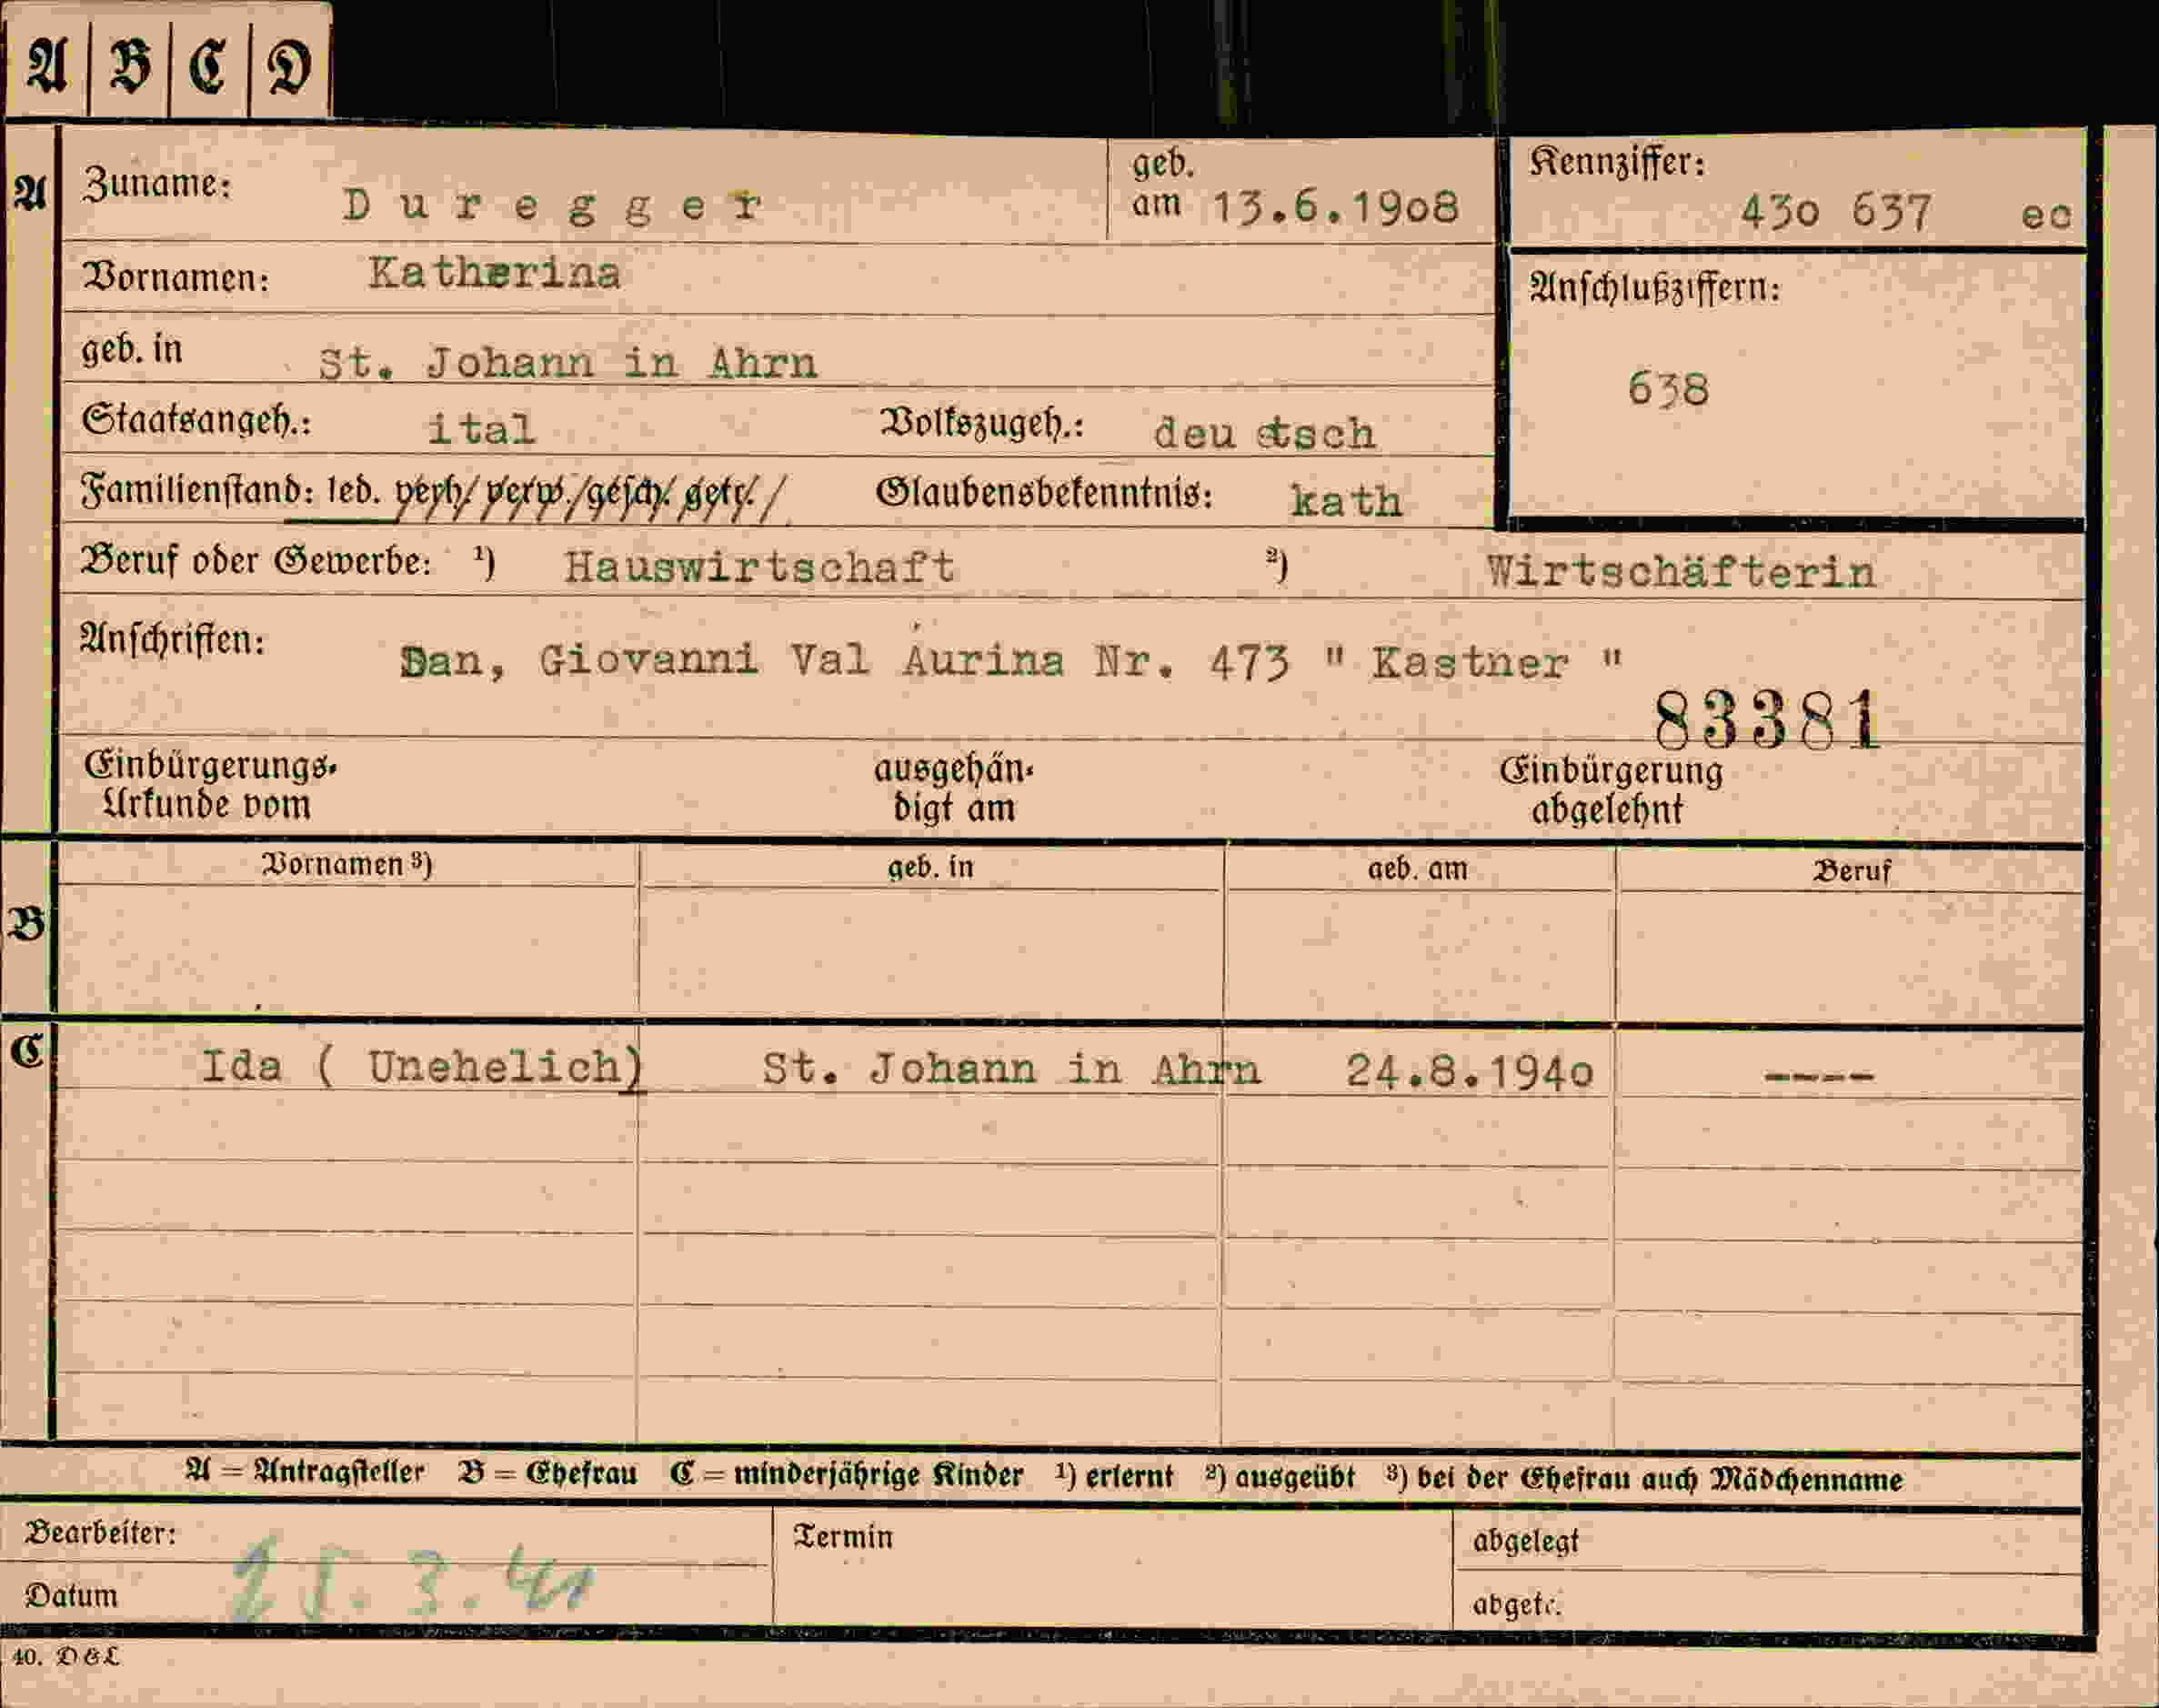 A B C D
A Zuname: Duregger geb. am 13.6.1908 Kennziffer: 430 637 ec
Vornamen: Katherina
Anschlußziffern:
geb. in St. Johann in Ahrn
638
Staatsangeh.: ital Volkszugeh.: deutsch
Familienstand: led. verh. verw. gesch. getr. Glaubensbekenntnis: kath
Beruf oder Gewerbe: ¹) Hauswirtschaft ²) Wirtschäfterin
Anschriften: San, Giovanni Val Aurina Nr. 473 " Kastner "
83381
Einbürgerungs- ausgehän- Einbürgerung
Urkunde vom digt am abgelehnt
Vornamen ³) geb. in geb. am Beruf
B
C Ida ( Unehelich) St. Johann in Ahrn 24.8.1940 ----
A = Antragsteller B = Ehefrau C = minderjährige Kinder ¹) erlernt ²) ausgeübt ³) bei der Ehefrau auch Mädchenname
Bearbeiter: Termin abgelegt
Datum 3.41 abgetr.
40. D & L